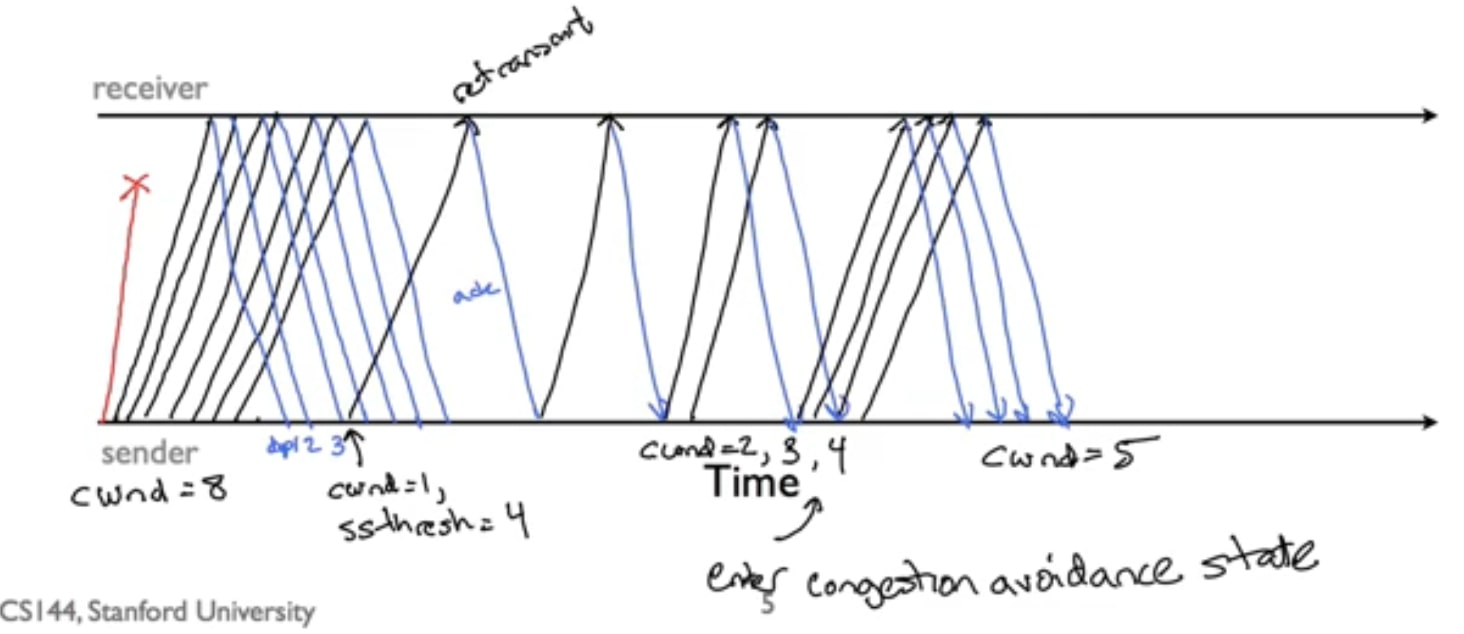 retransmit
receiver
ack
sender
dup 1 2 3
cwnd = 8
cwnd=1,
ssthresh = 4
cwnd=2, 3, 4
cwnd = 5
Time
enter congestion avoidance state
5
CS144, Stanford University